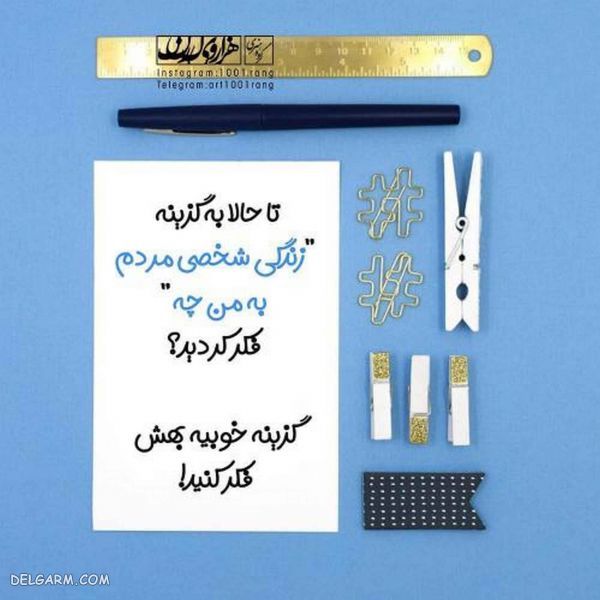 هزار و یک رنگ
Instagram:1001rang
Telegram:art1001rang
تا حالا به گزینه
"زندگی شخصی مردم
به من چه"
فکر کردید؟
گزینه خوبیه بهش
فکر کنید!
DELGARM.COM